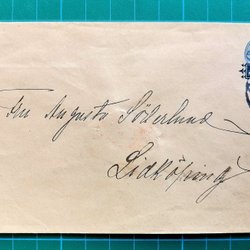 Fru Augusta Söderlund
Lidköping